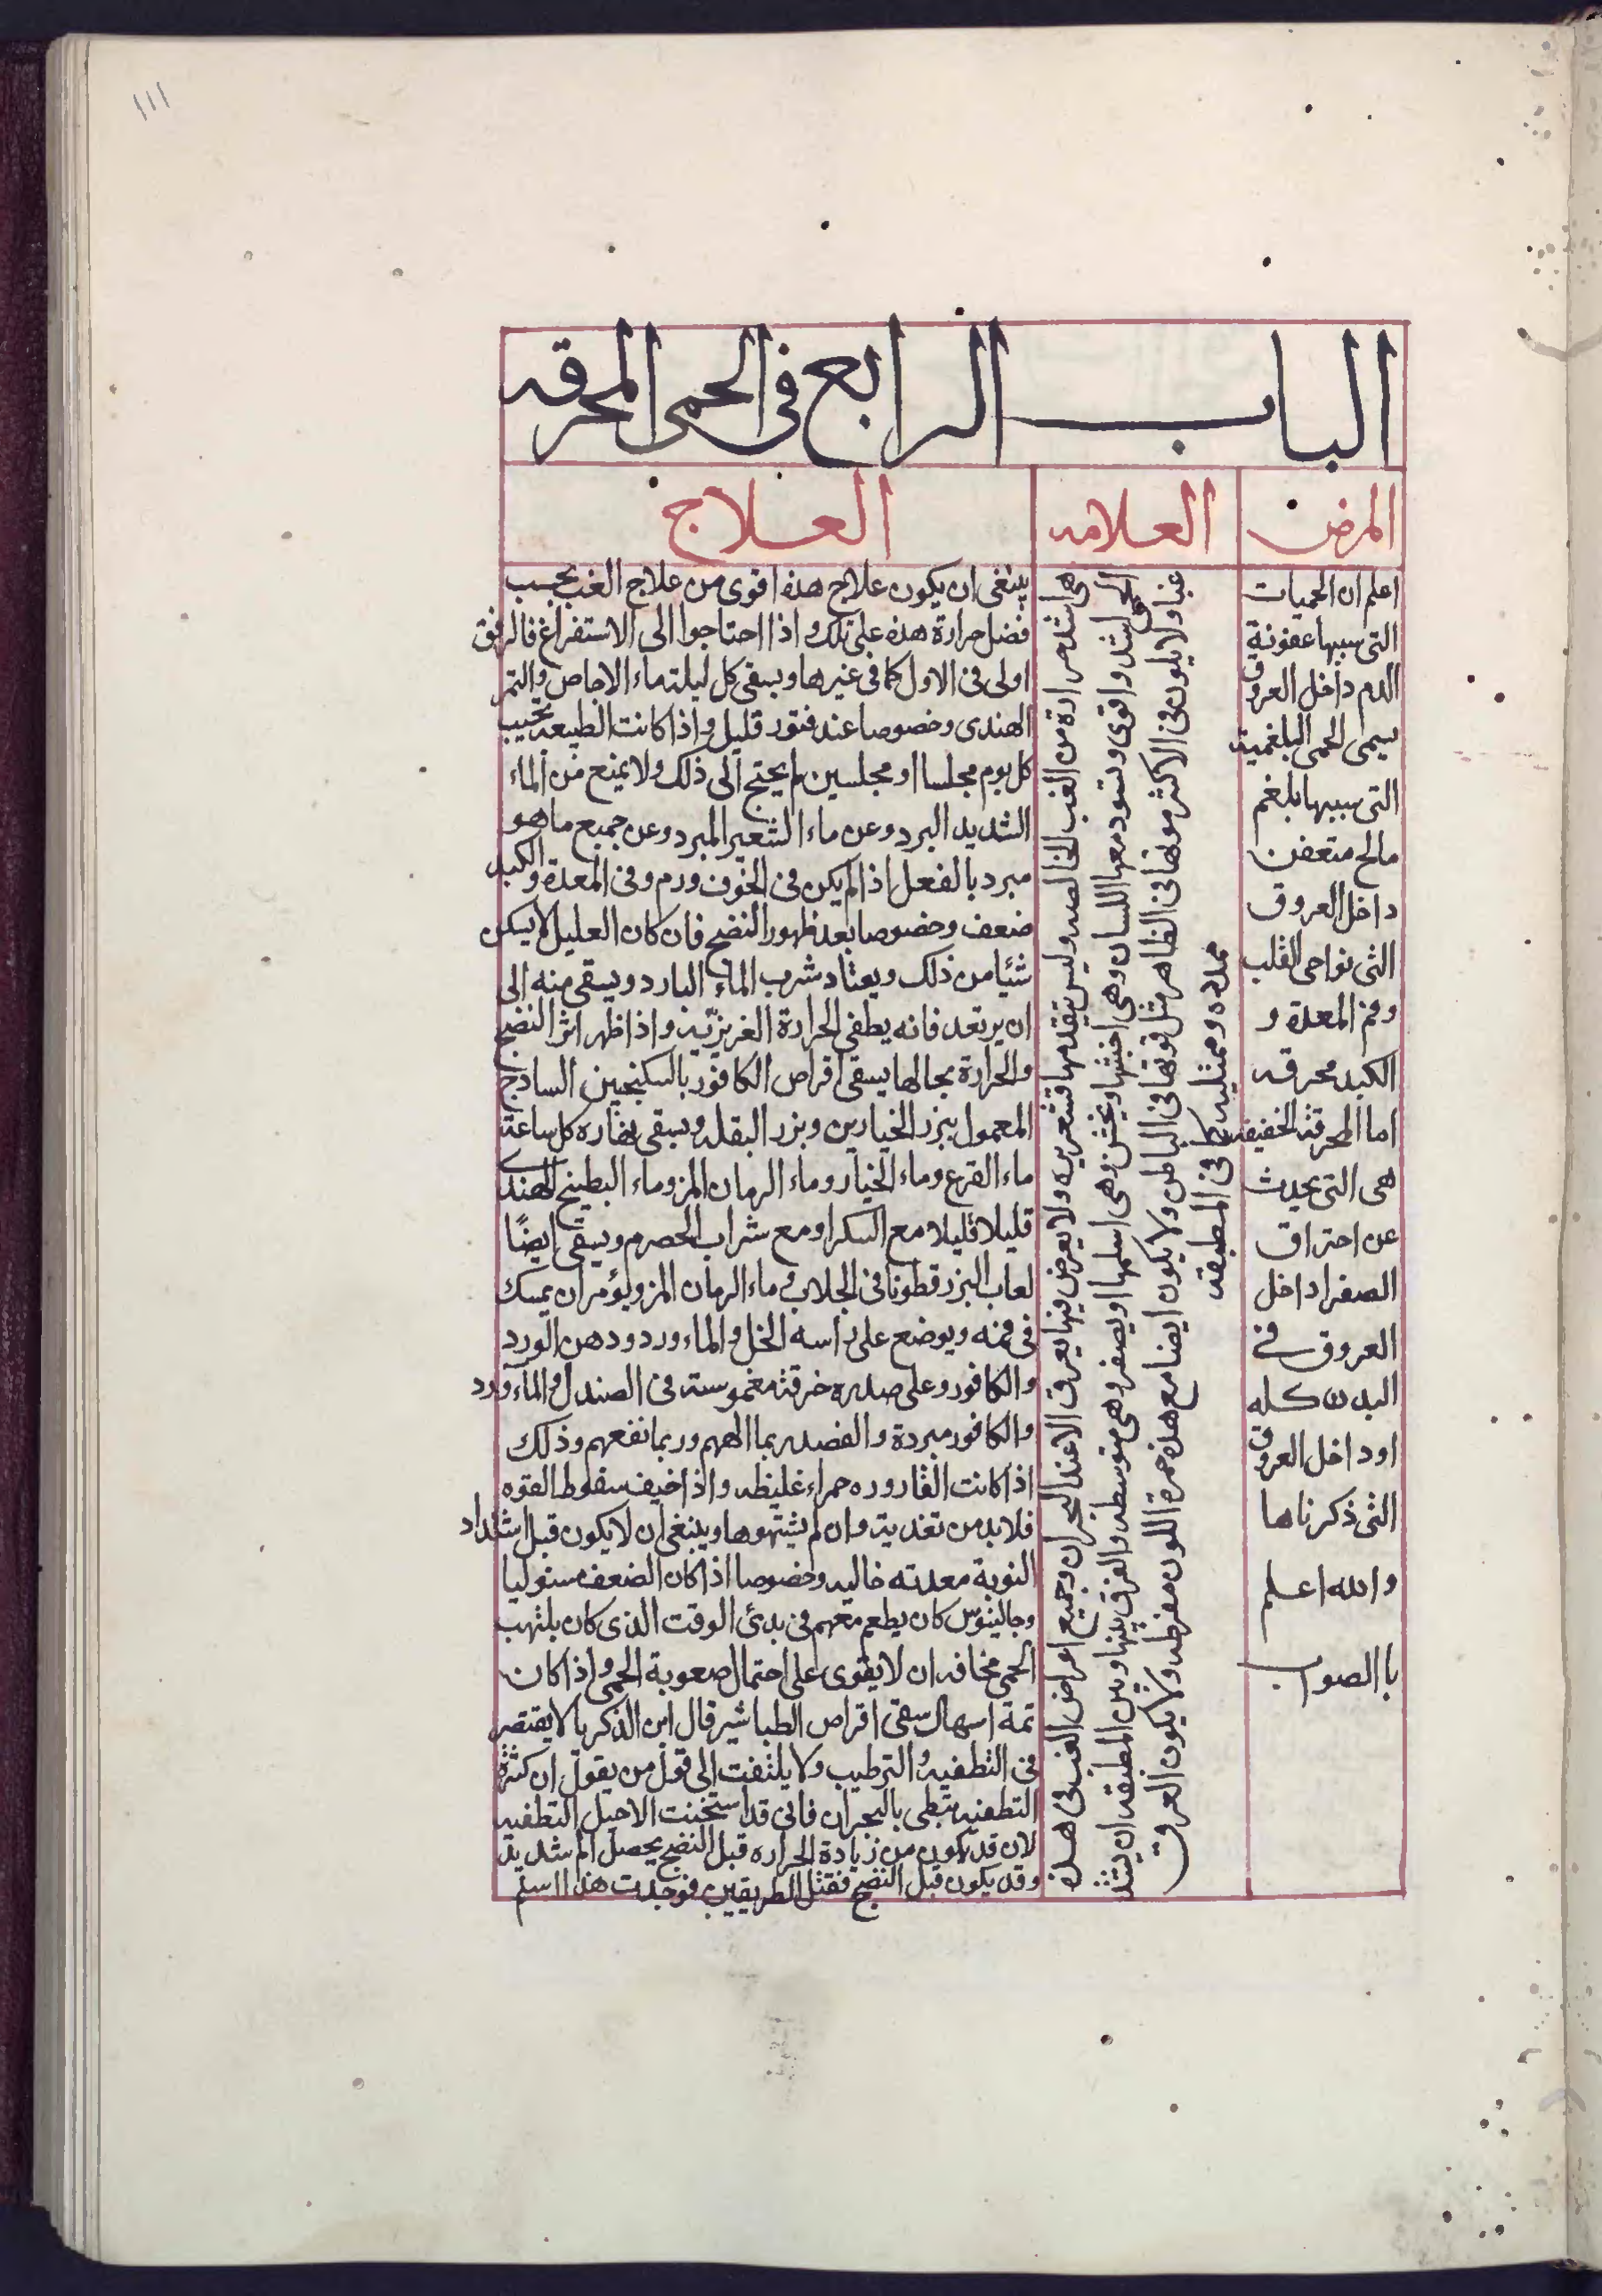 ١١١
الباب الرابع فى الحمى المحرقه
المرض
العلامه
العلاج
اعلم ان الحميات
التى سببها عفونة
الدم داخل العروق
سيمى الحمى البلغمية
التى سببها بلغم
مالح متعفن
داخل العروق
التى نواحى القلب
وفم المعدة و
الكبد محرقه
اما المحرقة الخفيفه
هى التى يحدث
عن احتراق
الصفرا داخل
العروق فى
البدن كله
او داخل العروق
التى ذكرناها
والله اعلم
با الصواب
هى اشد حرارة من الغب الخالصه وليس يتقدمها قشعريره ولا يعرض فيها بعرق الا عند البحران وجميع اعراض الغب فى هذه
الحمى اشد واقوى وتسود معها اللسان وهى اخبثها ويخشن وهى اسلمها او يصفر وهى متوسطه والفرق بينها وبين المطبقه ان يشتد
غبا ولا يكون فى الاكثر قوتها فى الظاهر مثل قوتها فى الباطن ولا يكون ايضا مع هذه حمرة اللون مفرطه ولا يكون العرق
ممدده وممتليه فى المطبقه
ينبغى ان يكون علاج هذه اقوى من علاج الغب بحسب
فضل حرارة هذه على تلك واذا احتاجوا الى الاستفراغ فالرفق
اولى فى الاول كما فى غيرها ويسقى كل ليلة ماء الاجاص والتمر
الهندى وخصوصا عند فتور قليل واذا كانت الطبيعه تجيب
كل يوم مجلسا او مجلسين لم يحتج الى ذلك ولا يمنع من الماء
الشديد البرد وعن ماء الشعير المبرد وعن جميع ما هو
مبرد بالفعل اذا لم يكن فى الجوف ورم وفى المعدة والكبد
ضعف وخصوصا بعد ظهور النضج فان كان العليل لا يمكن
شئا من ذلك ويعتاد شرب الماء البارد ويسقى منه الى
ان يرتعد فانه يطفى الحرارة الغريزيه واذا ظهر اثر النضج
والحرارة بحالها يسقى اقراص الكافور بالسكنجبين الساذج
المعمول ببزر الخيارين وبزر البقله ويسقى نهاره كل ساعة
ماء القرع وماء الخيار وماء الرمان المز وماء البطيخ الهندى
قليلا قليلا مع السكر او مع شراب الحصرم ويسقى ايضًا
لعاب البزر قطونا فى الجلاب و ماء الرمان المز ويؤمر ان يمسك
فى فمه ويوضع على راسه الخل و الماء ورد ودهن الورد
والكافور وعلى صدره خرقة مغموسة فى الصندل والماء ورد
والكافور مبردة والفصد ربما الهم وربما نفعهم وذلك
اذا كانت القاروره حمراء غليظه واذا خيف سقوط القوه
فلابد من تغذية وان لم يشتهوها وينبغى ان لا يكون قبل اشتداد
النوبة معدته خاليه وخصوصا اذا كان الضعف مستوليا
وجالينوس كان يطعم معهم فى بدئ الوقت الذى كان يلتهب
الحمى مخافه ان لا يقوى على احتمال صعوبة الحمى واذا كان
ثمة اسهال سقى اقراص الطباشير قال ابن الذكريا لا يقتصر
فى التطفيه والترطيب ولا يلتفت الى قول من يقول ان كثرة
التطفيه تبطى بالبحران فانى قد استخنت الاجيل التطفيه
لان قد يكون من زيادة الحراره قبل النضج يحصل الم شديد
وقد يكون قبل النضج فقتل الطريقين فوجدت هذا اسلم